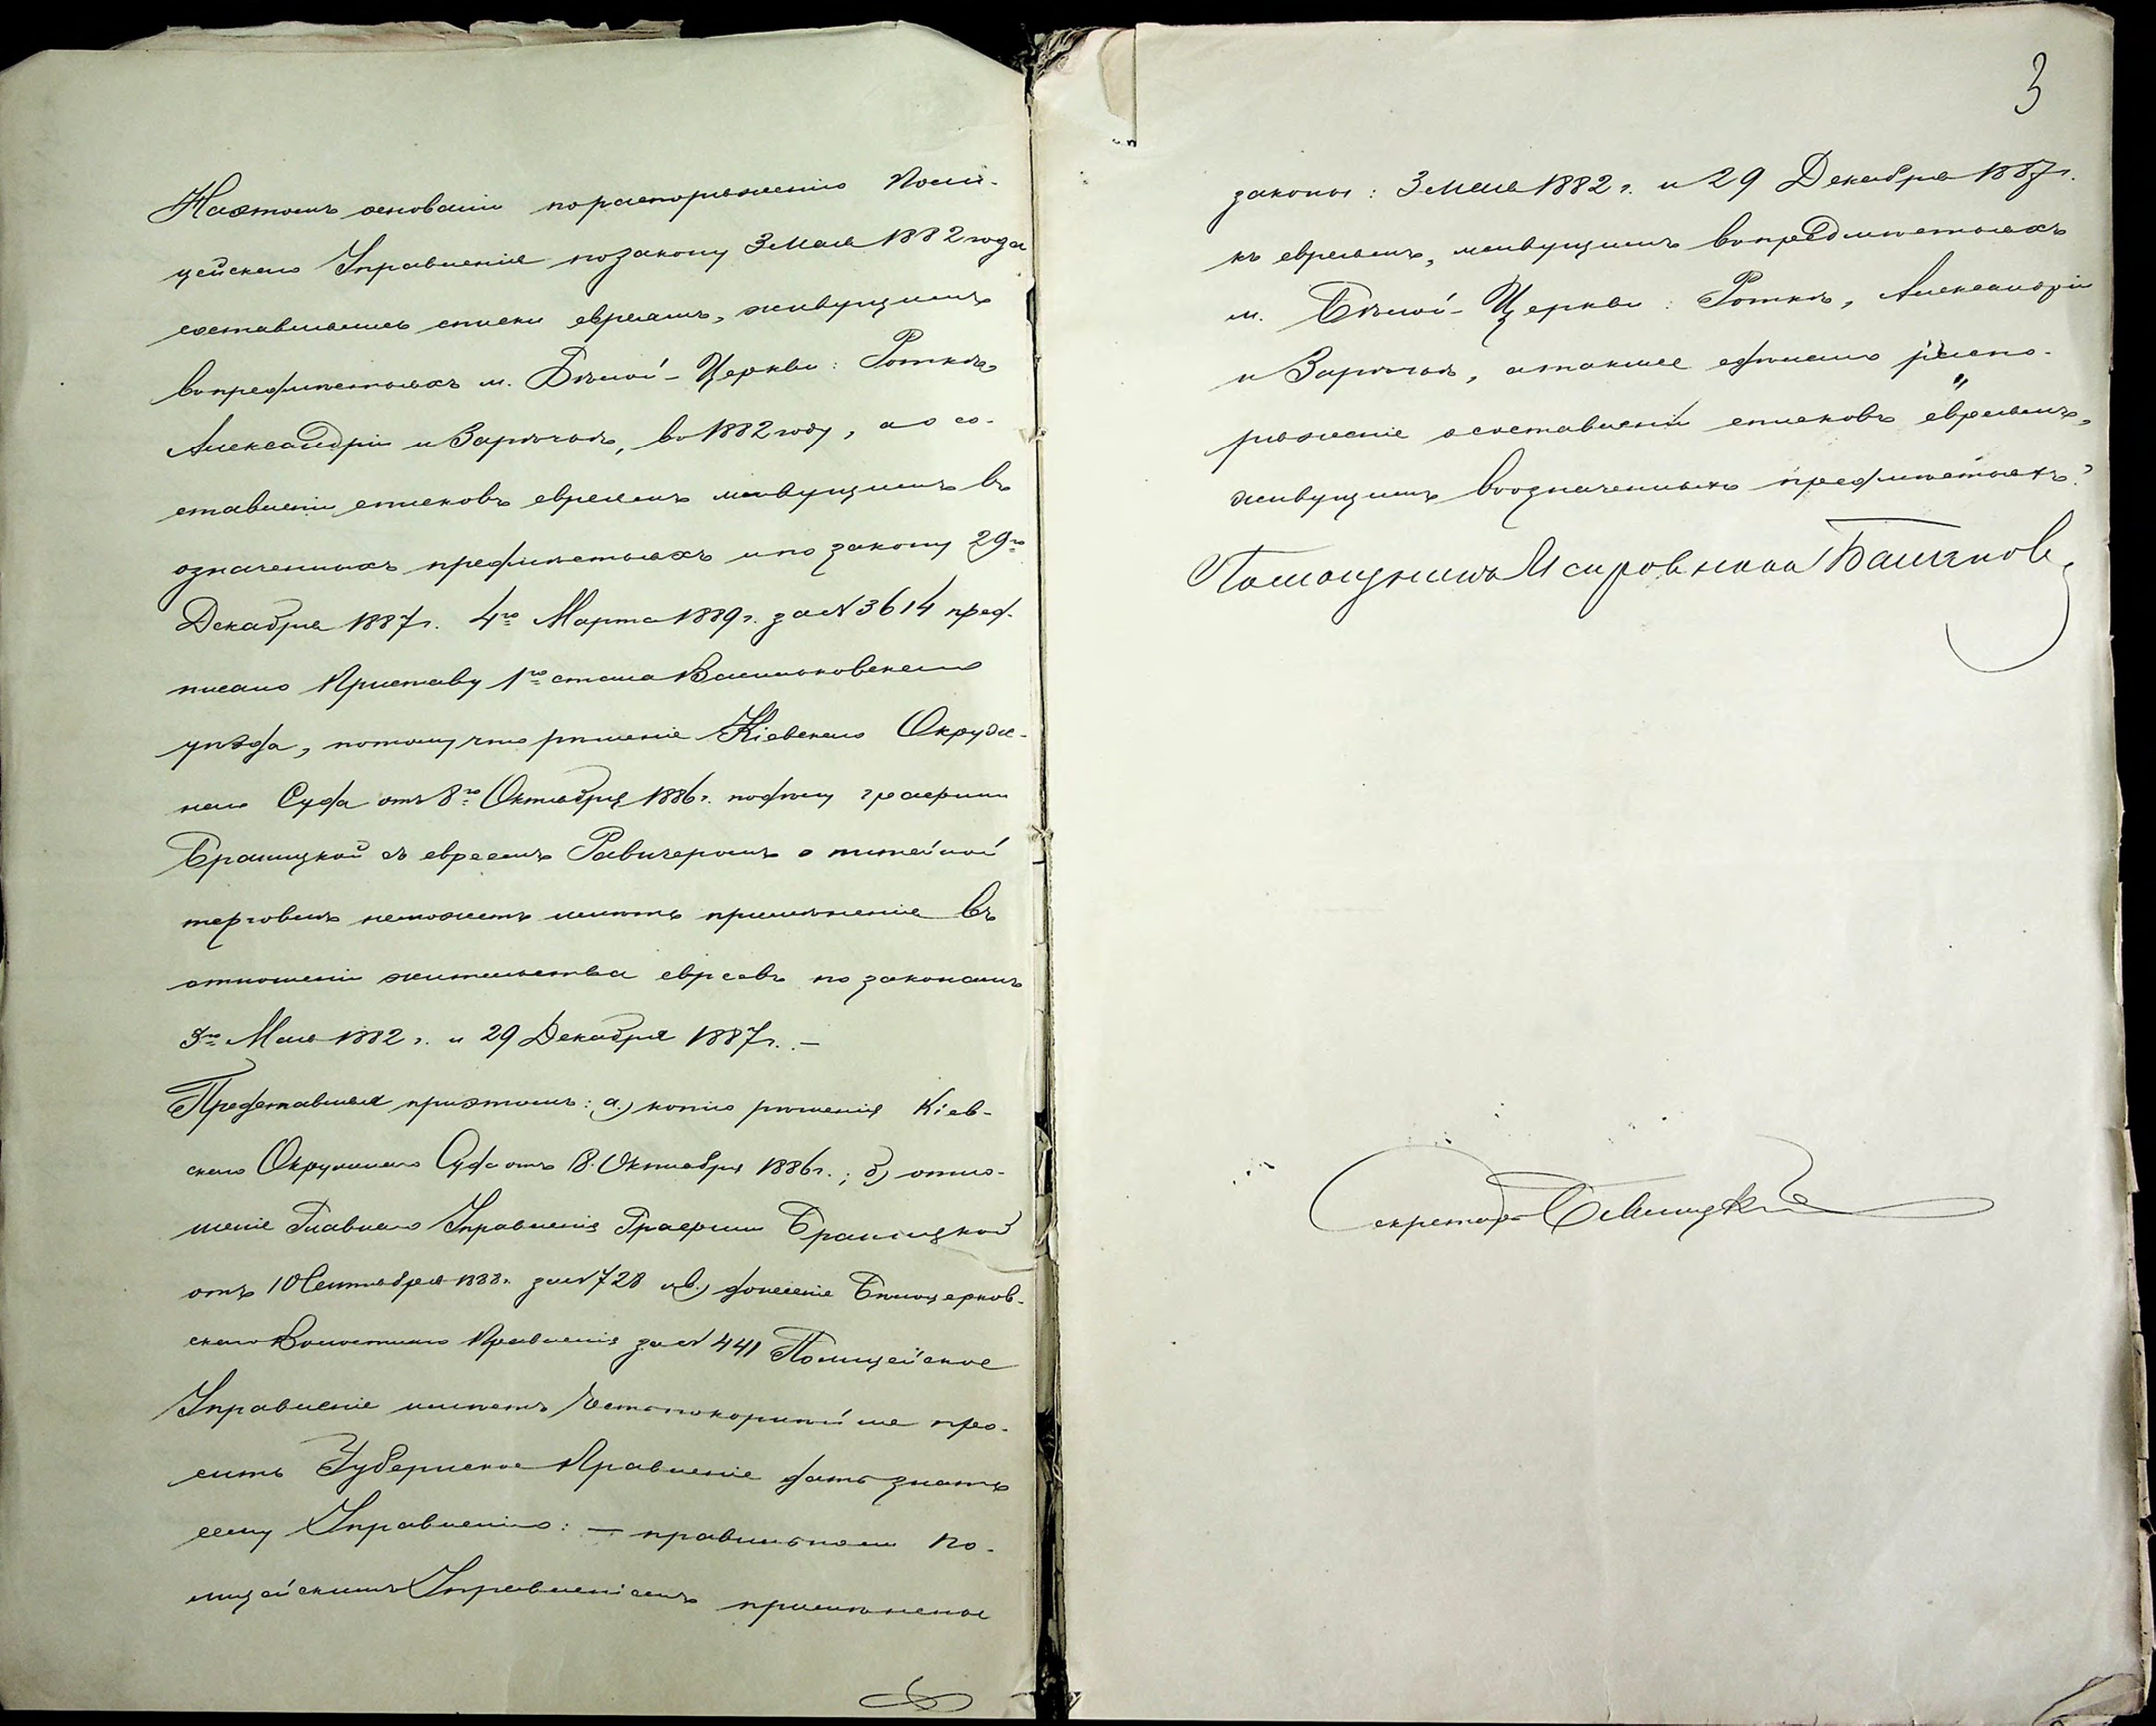 На этомъ основаніи по распоряженію Поли-
цейскаго Управленія по закону 3 Мая 1882 года
составлялись списки евреямъ, живущимъ
въ предмѣстьяхъ м. Бѣлой-Церкви: Роткѣ,
Александріи и Зарѣчьѣ, въ 1882 году, а о со-
ставленіи списковъ евреямъ живущимъ въ
означенныхъ предмѣстьяхъ и по закону 29го
Декабря 1887 г. 4го Марта 1889 г. за № 3614 пред-
писано Приставу 1го стана Васильковскаго
уѣзда, потому что рѣшеніе Кіевскаго Окруж-
наго Суда отъ 8го Октября 1886 г. по дѣлу графини
Браницкой съ евреемъ Равичеромъ о питейной
торговлѣ не можетъ имѣть примѣненіе въ
отношеніи жительства евреевъ по законамъ
3го Мая 1882 г. и 29 Декабря 1887 г. –
Представляя при этомъ: а.) копію рѣшенія Кіев-
скаго Окружнаго Суда отъ 8 Октября 1886 г.; б) отно-
шеніе Главнаго Управленія Графини Браницкой
отъ 10 Сентября 1888 г. за № 728 и в.) донесеніе Бѣлоцерков-
скаго Волостнаго Правленія за № 441 Полицейское
Управленіе имѣетъ честь покорнѣйше про-
сить Губернское Правленіе дать знать
сему Управленію: – правильно ли По-
лицейскимъ Управленіемъ примѣнены
3
законы: 3 Мая 1882 г. и 29 Декабря 1887 г.
къ евреямъ, живущимъ въ предмѣстьяхъ
м. Бѣлой-Церкви: Роткѣ, Александріи
и Зарѣчьѣ, а также сдѣлано распо-
ряженіе о составленіи списковъ евреямъ,
живущимъ въ означенныхъ предмѣстьяхъ?
Помощникъ Исправника
Секретарь